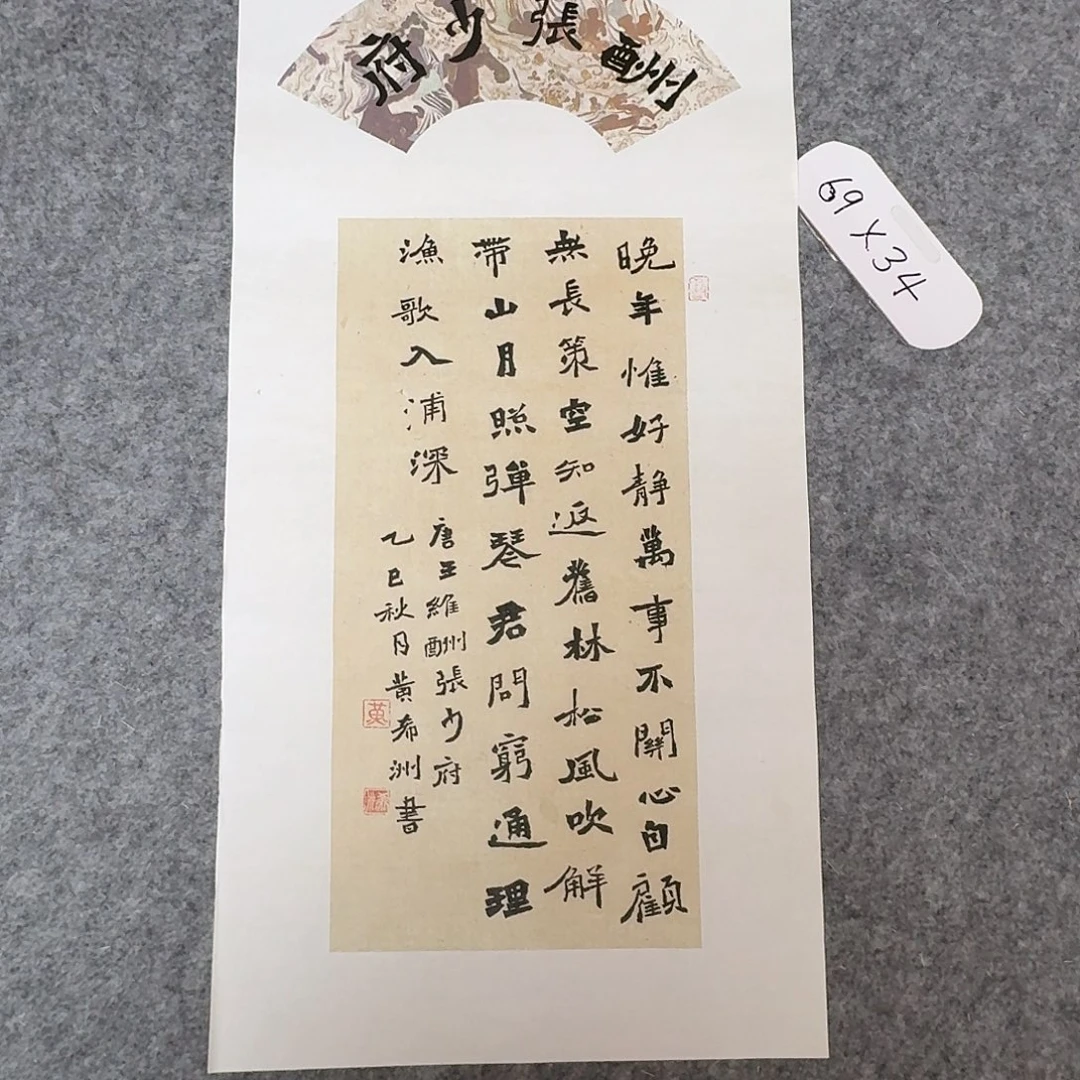 酬張少府
晚年惟好靜萬事不關心自顧
無長策空知返舊林松風吹解
帶山月照彈琴君問窮通理
漁歌入浦深
唐王維酬張少府
乙巳秋月黄希洲書
黄
69×34